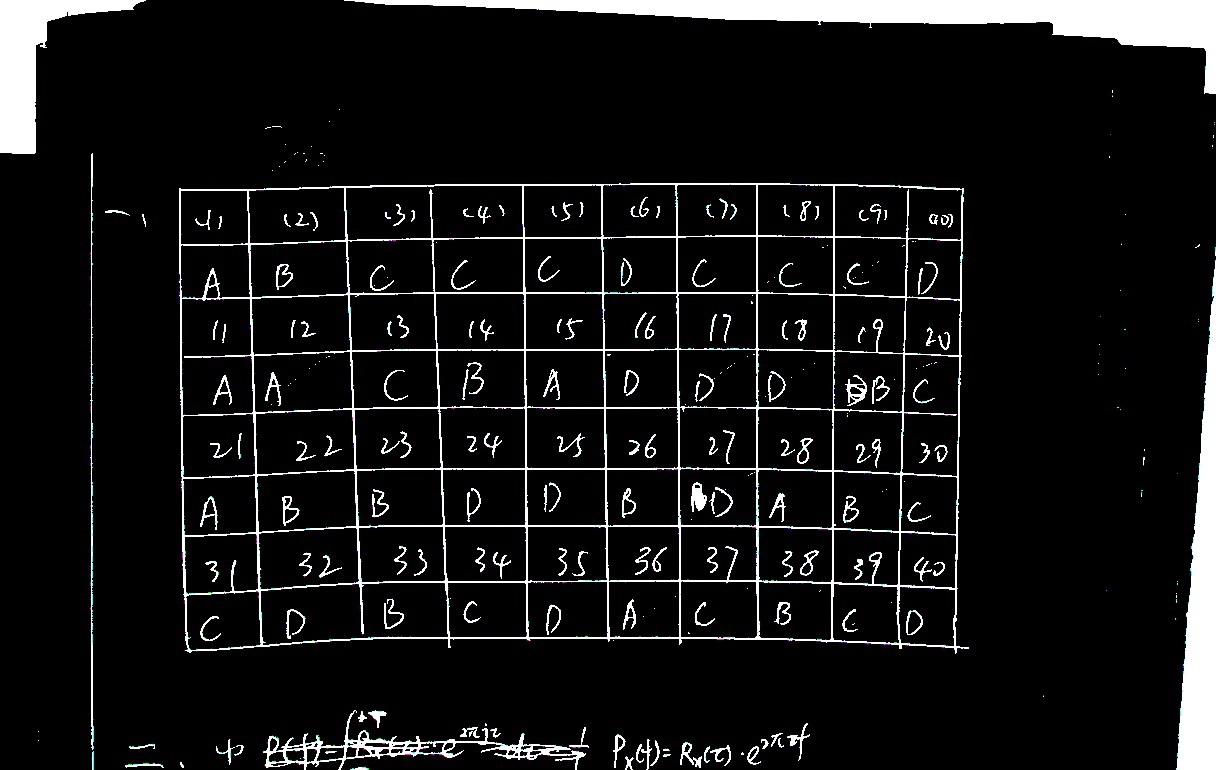 一、 (1) (2) (3) (4) (5) (6) (7) (8) (9) (10)
A B C C C D C C C D
11 12 13 14 15 16 17 18 19 20
A A C B A D D D B C
21 22 23 24 25 26 27 28 29 30
A B B D D B D A B C
31 32 33 34 35 36 37 38 39 40
C D B C D A C B C D
二、 Px(f)=Rx(τ)·e